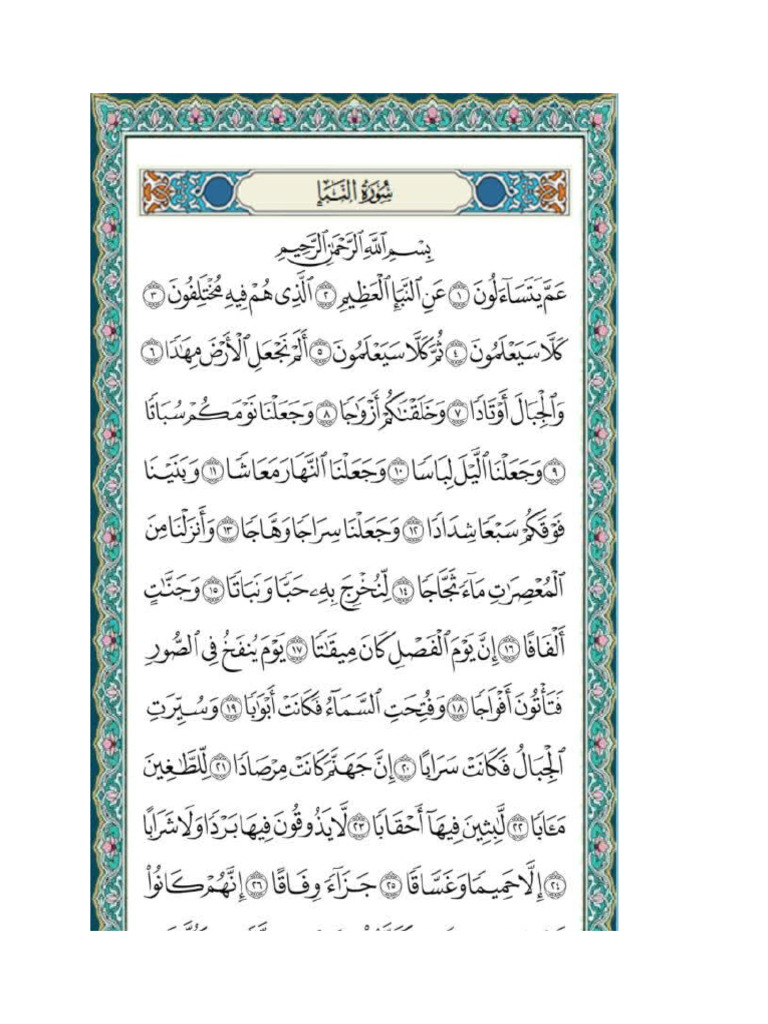 سُورَةُ النَّبَإِ
بِسْمِ ٱللَّهِ ٱلرَّحْمَٰنِ ٱلرَّحِيمِ
عَمَّ يَتَسَآءَلُونَ ١ عَنِ ٱلنَّبَإِ ٱلْعَظِيمِ ٢ ٱلَّذِى هُمْ فِيهِ مُخْتَلِفُونَ ٣
كَلَّا سَيَعْلَمُونَ ٤ ثُمَّ كَلَّا سَيَعْلَمُونَ ٥ أَلَمْ نَجْعَلِ ٱلْأَرْضَ مِهَٰدًا ٦
وَٱلْجِبَالَ أَوْتَادًا ٧ وَخَلَقْنَٰكُمْ أَزْوَٰجًا ٨ وَجَعَلْنَا نَوْمَكُمْ سُبَاتًا
٩ وَجَعَلْنَا ٱلَّيْلَ لِبَاسًا ١٠ وَجَعَلْنَا ٱلنَّهَارَ مَعَاشًا ١١ وَبَنَيْنَا
فَوْقَكُمْ سَبْعًا شِدَادًا ١٢ وَجَعَلْنَا سِرَاجًا وَهَّاجًا ١٣ وَأَنزَلْنَا مِنَ
ٱلْمُعْصِرَٰتِ مَآءً ثَجَّاجًا ١٤ لِّنُخْرِجَ بِهِۦ حَبًّا وَنَبَاتًا ١٥ وَجَنَّٰتٍ
أَلْفَافًا ١٦ إِنَّ يَوْمَ ٱلْفَصْلِ كَانَ مِيقَٰتًا ١٧ يَوْمَ يُنفَخُ فِى ٱلصُّورِ
فَتَأْتُونَ أَفْوَاجًا ١٨ وَفُتِحَتِ ٱلسَّمَآءُ فَكَانَتْ أَبْوَٰبًا ١٩ وَسُيِّرَتِ
ٱلْجِبَالُ فَكَانَتْ سَرَابًا ٢٠ إِنَّ جَهَنَّمَ كَانَتْ مِرْصَادًا ٢١ لِّلطَّٰغِينَ
مَـَٔابًا ٢٢ لَّٰبِثِينَ فِيهَآ أَحْقَابًا ٢٣ لَّا يَذُوقُونَ فِيهَا بَرْدًا وَلَا شَرَابًا
٢٤ إِلَّا حَمِيمًا وَغَسَّاقًا ٢٥ جَزَآءً وِفَاقًا ٢٦ إِنَّهُمْ كَانُوا۟